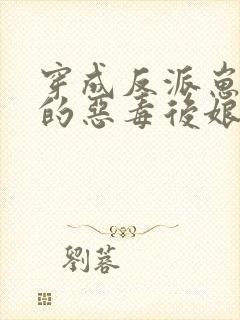 穿成反派崽
的惡毒後娘
劉蓉